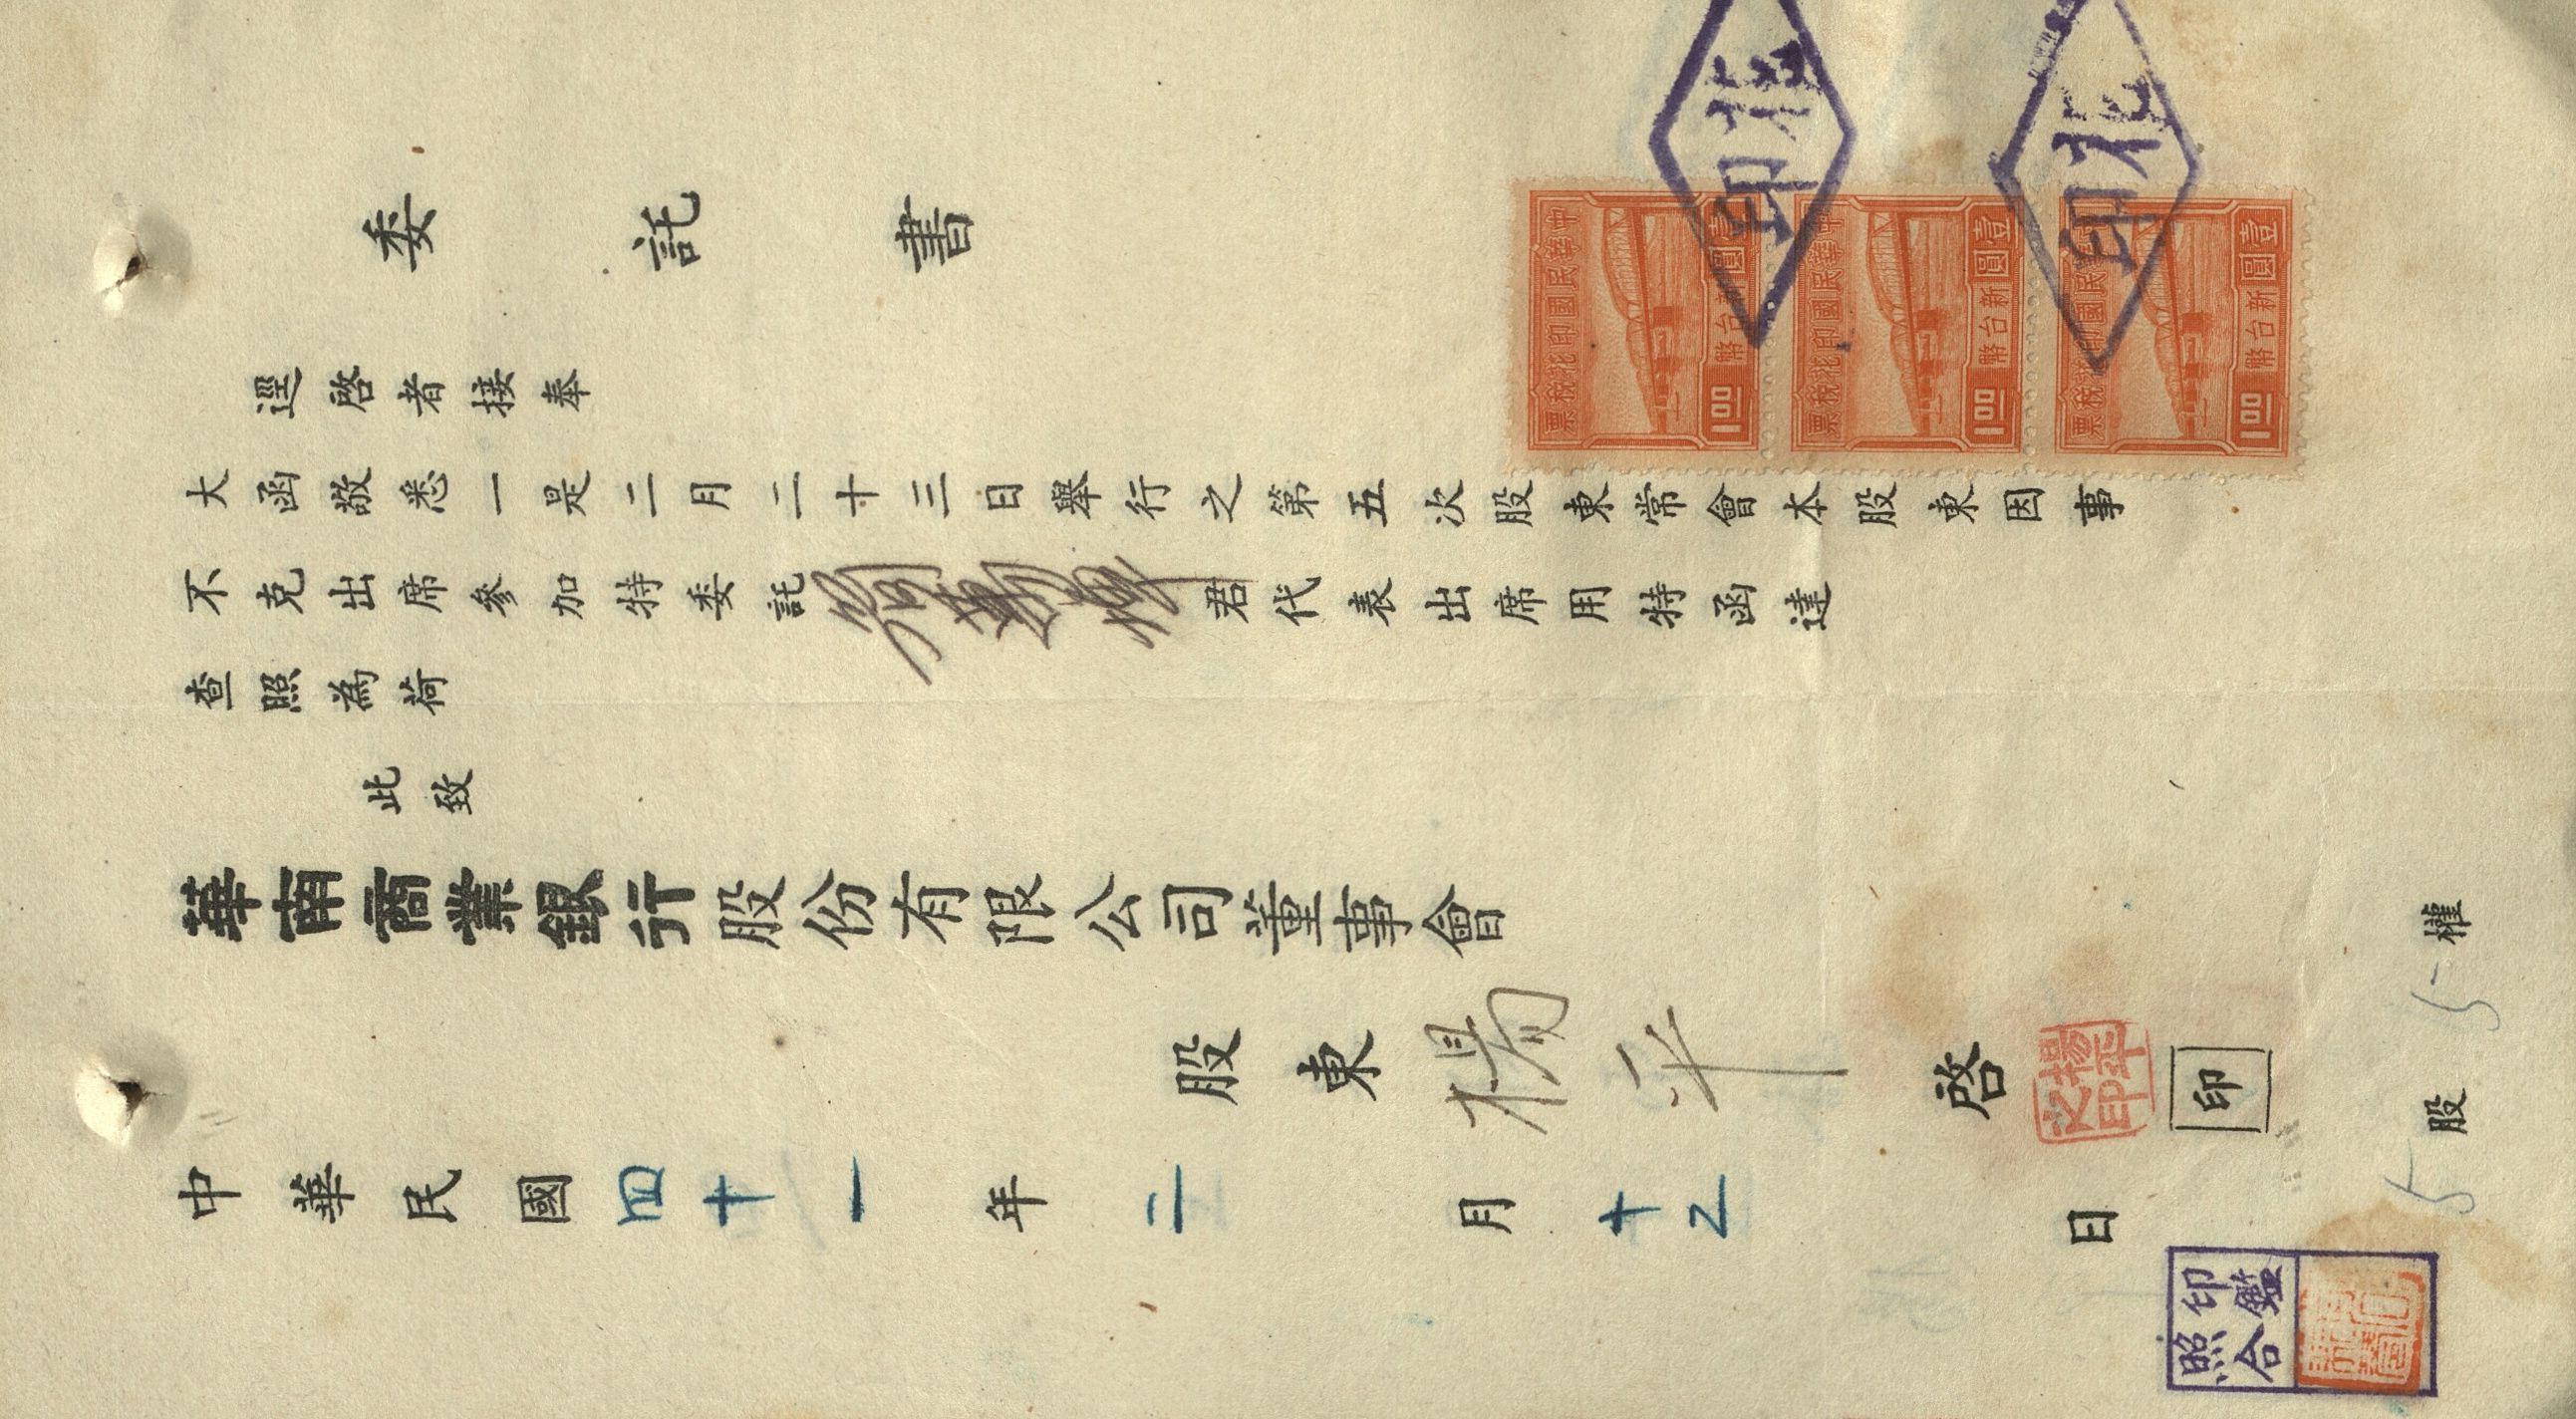 委託書
中華民國印花稅票
新台幣
壹圓
1.00
中華民國印花稅票
新台幣
壹圓
1.00
中華民國印花稅票
新台幣
壹圓
1.00
花印
花印
逕啓者接奉
大函敬悉一是二月二十三日舉行之第五次股東常會本股東因事
不克出席參加特委託君代表出席用特函達
查照為荷
此致
華南商業銀行股份有限公司董事會
股東楊平啓
楊平之印
印
5權
5股
中華民國四十一年二月十乙日
印鑑照合